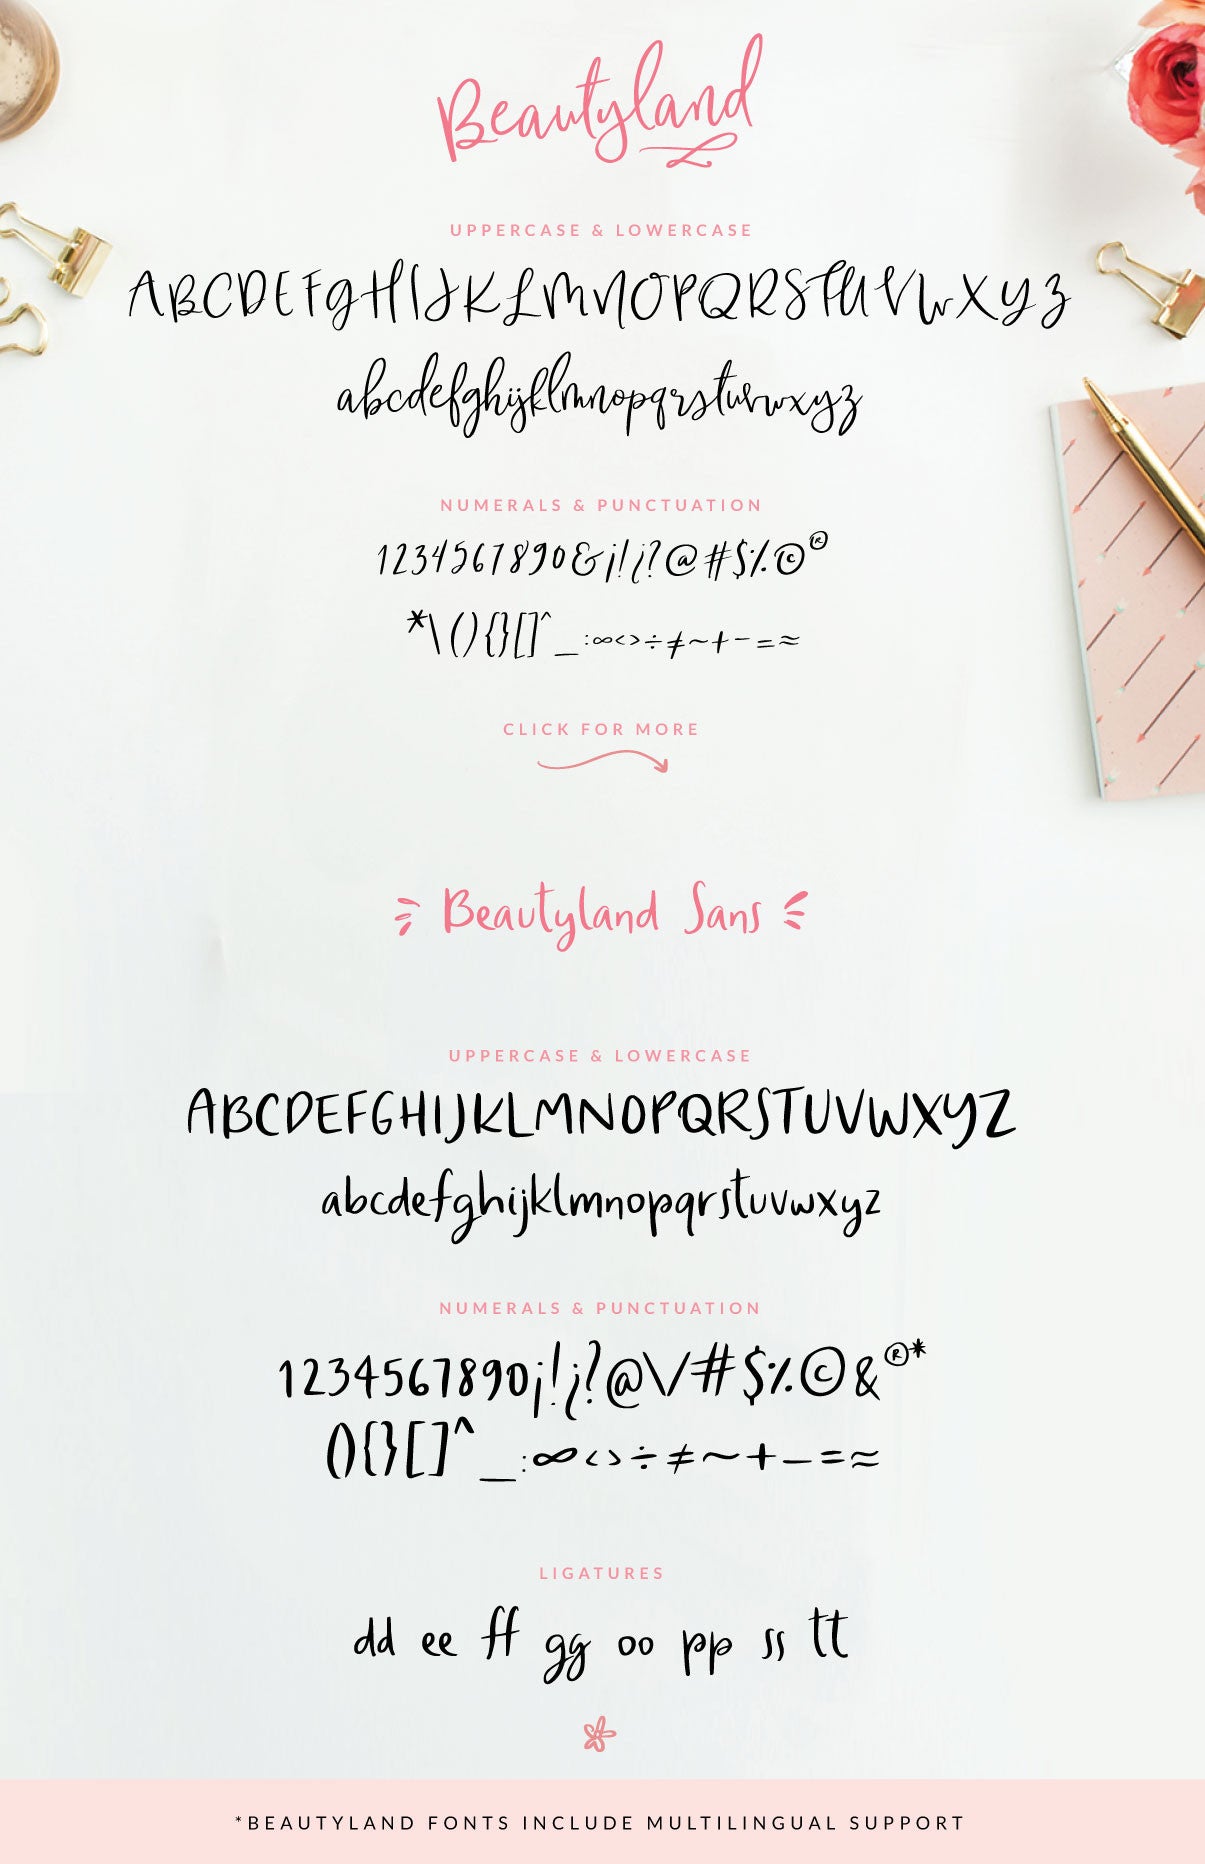 Beautyland
UPPERCASE & LOWERCASE
ABCDEFGHIJKLMNOPQRSTUVWXYZ
abcdefghijklmnopqrstuvwxyz
NUMERALS & PUNCTUATION
1234567890&¡!¿?@#$%©®
*\(){}[]^_:∞<>÷≠~+-=≈
CLICK FOR MORE
Beautyland Sans
UPPERCASE & LOWERCASE
ABCDEFGHIJKLMNOPQRSTUVWXYZ
abcdefghijklmnopqrstuvwxyz
NUMERALS & PUNCTUATION
1234567890¡!¿?@\/#$%©&®*
(){}[]^_:∞<>÷≠~+-=≈
LIGATURES
dd ee ff gg oo pp ss tt
*BEAUTYLAND FONTS INCLUDE MULTILINGUAL SUPPORT